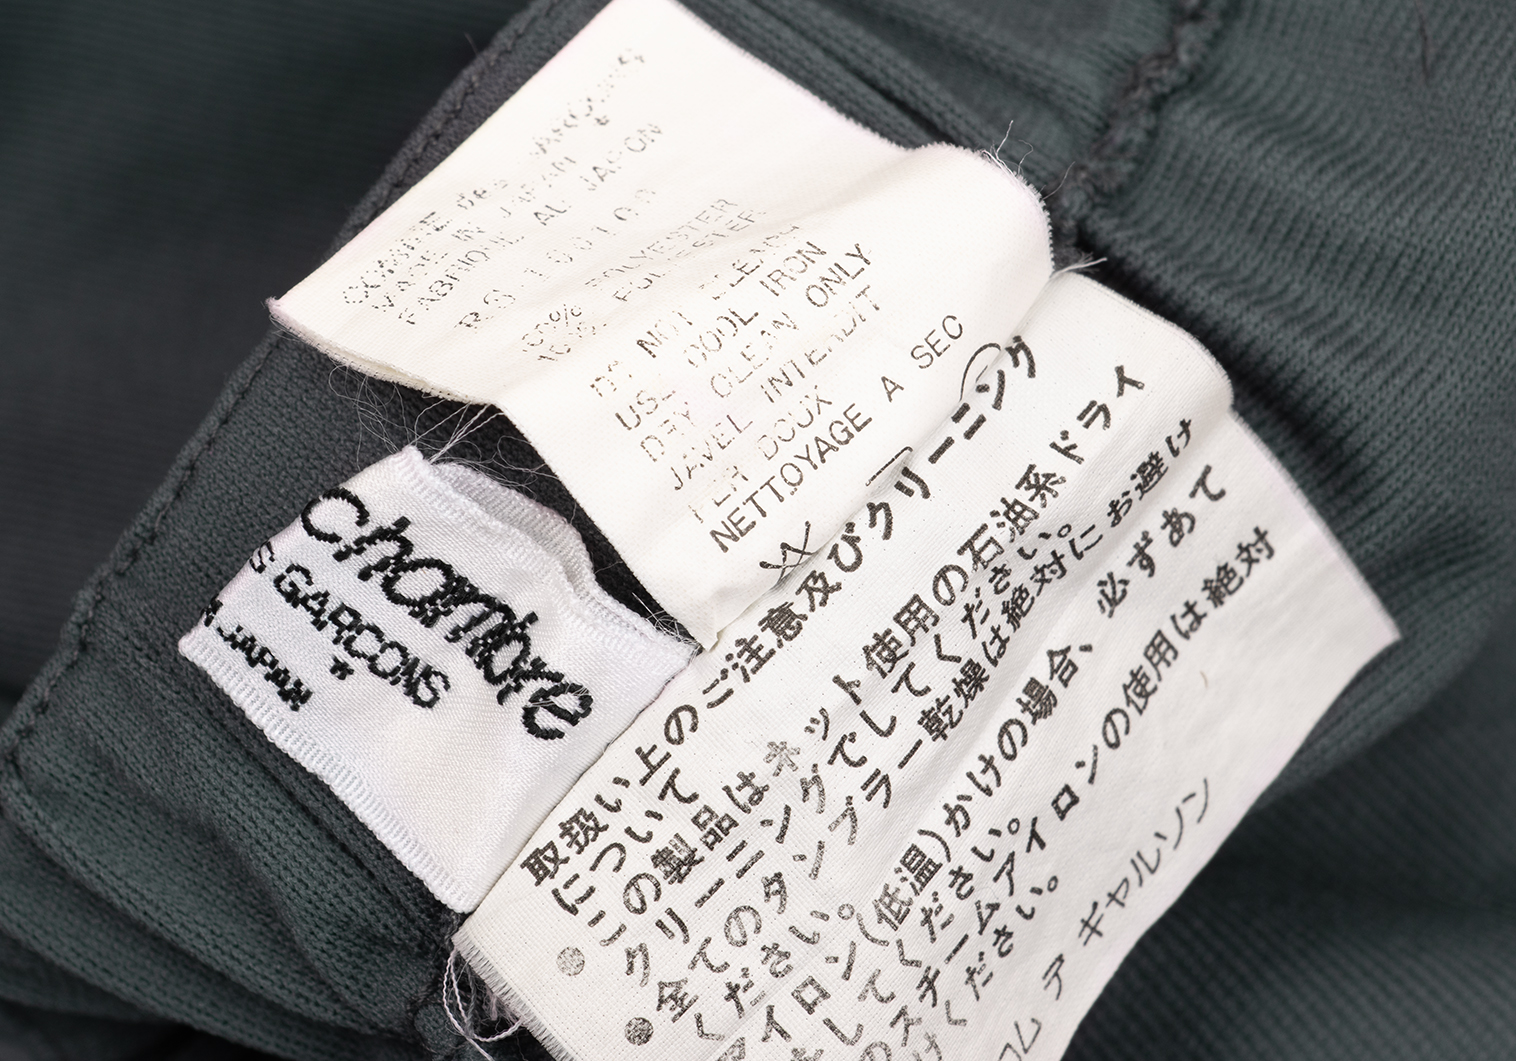 COMME des GARCONS
MADE IN JAPAN
FABRIQUE AU JAPON
100% POLYESTER
100% POLYESTER
DO NOT BLEACH
USE COOL IRON
DRY CLEAN ONLY
JAVEL INTERDIT
FER DOUX
NETTOYAGE A SEC
chambre
S GARCONS
JAPAN
取扱い上のご注意及びクリーニング
について
●この製品はネット使用の石油系ドライ
クリーニングでしてください。
●全てのタンブラー乾燥は絶対にお避け
ください。
アイロン(低温)かけの場合、必ずあて
をしてください。
のスチームアイロンの使用は絶対
けください。
コム デ ギャルソン